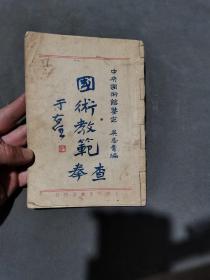 中央國術館審定 吳志青編
國術教範
查拳
于右任